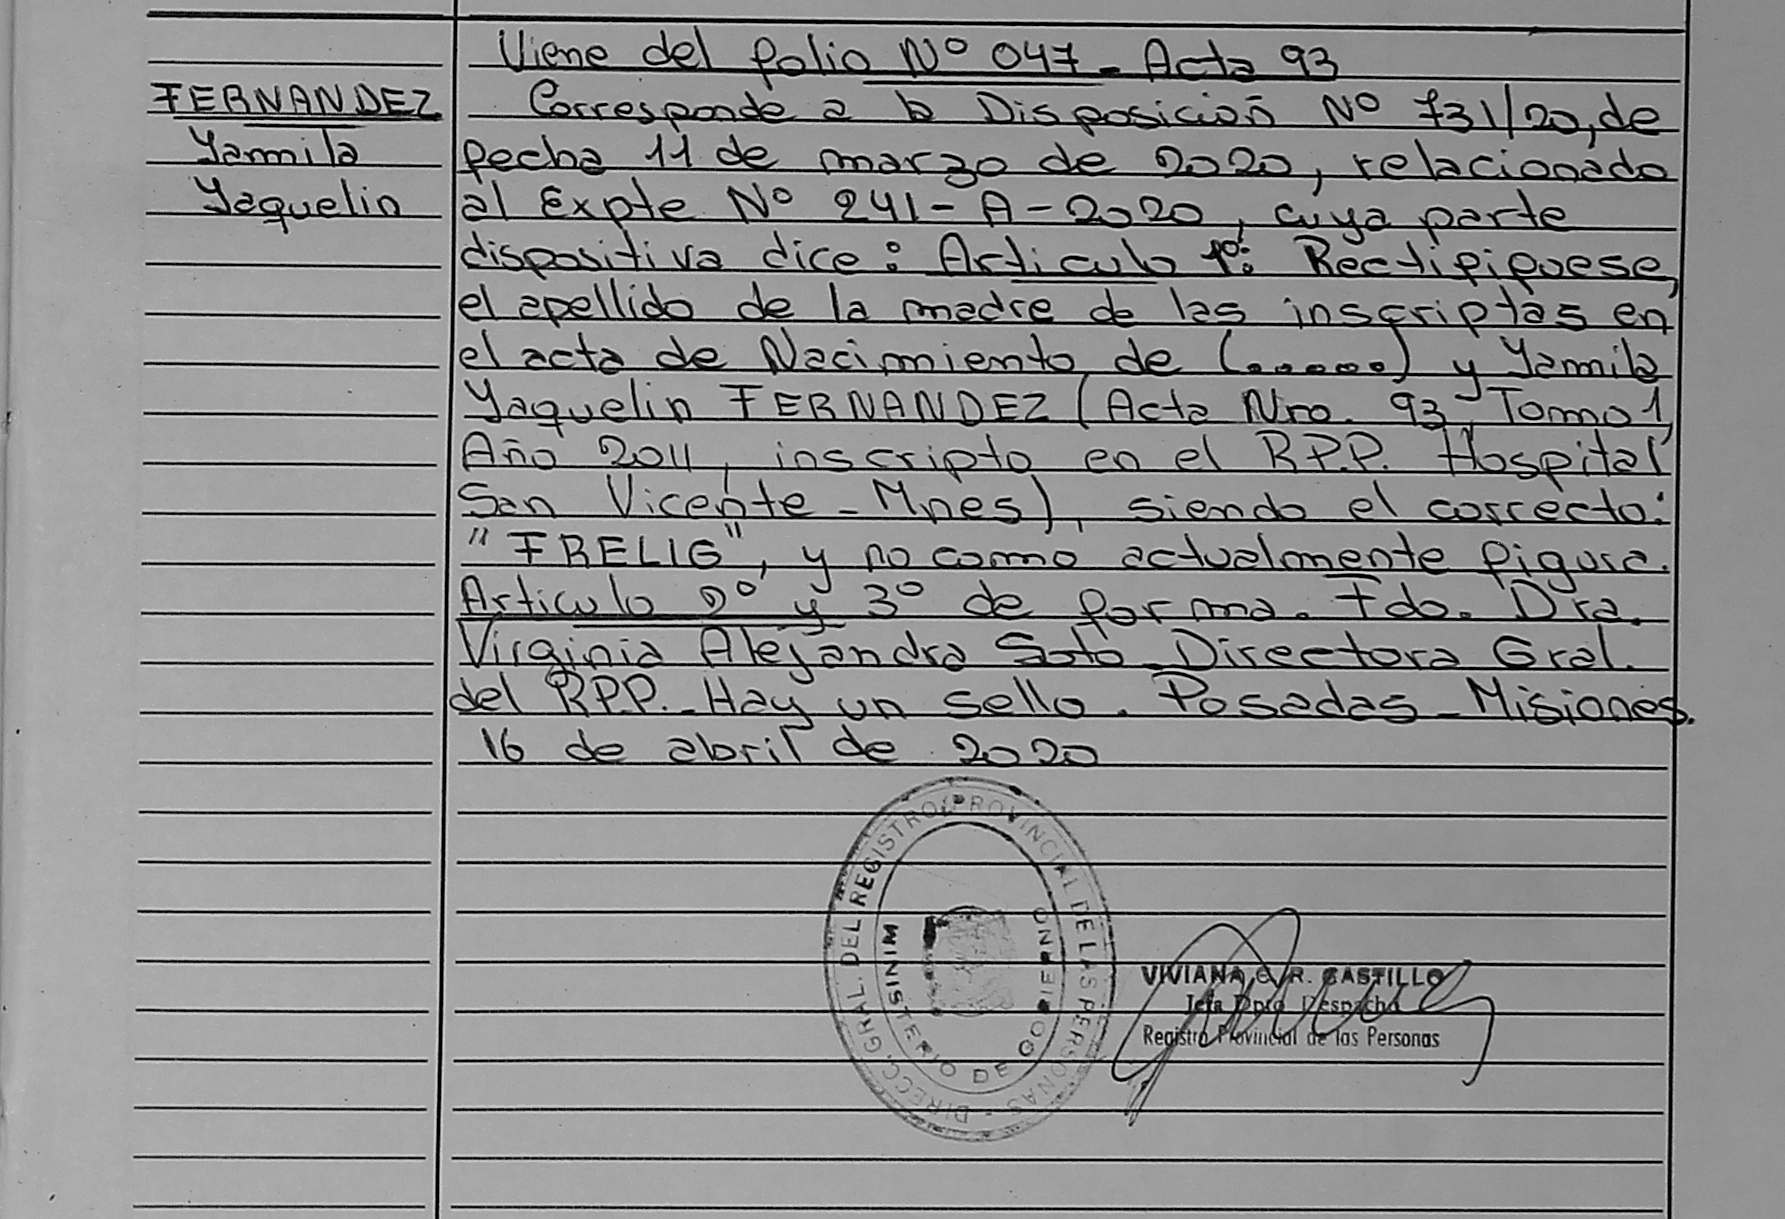 Viene del folio Nº 047 - Acta 93
FERNANDEZ
Yamila
Yaquelin
Corresponde a la Disposición Nº 731/20, de
fecha 11 de marzo de 2020, relacionado
al Expte Nº 241-A-2020, cuya parte
dispositiva dice: Articulo 1º: Rectifiquese,
el apellido de la madre de las inscriptas en
el acta de Nacimiento de (.....) y Yamila
Yaquelin FERNANDEZ (Acta Nro. 93, Tomo 1,
Año 2011, inscripto en el R.P.P. Hospital
San Vicente - Mnes), siendo el correcto:
"FRELIG", y no como actualmente figura.
Articulo 2º y 3º de forma. Fdo. Dra.
Virginia Alejandra Soto Directora Gral.
del R.P.P. - Hay un sello. Posadas - Misiones.
16 de abril de 2020
DIRECC. GRAL. DEL REGISTRO PROVINCIAL DE LAS PERSONAS -
MINISTERIO DE GOBIERNO
VIVIANA G. R. CASTILLO
Jefa Dpto Despacho
Registro Provincial de las Personas